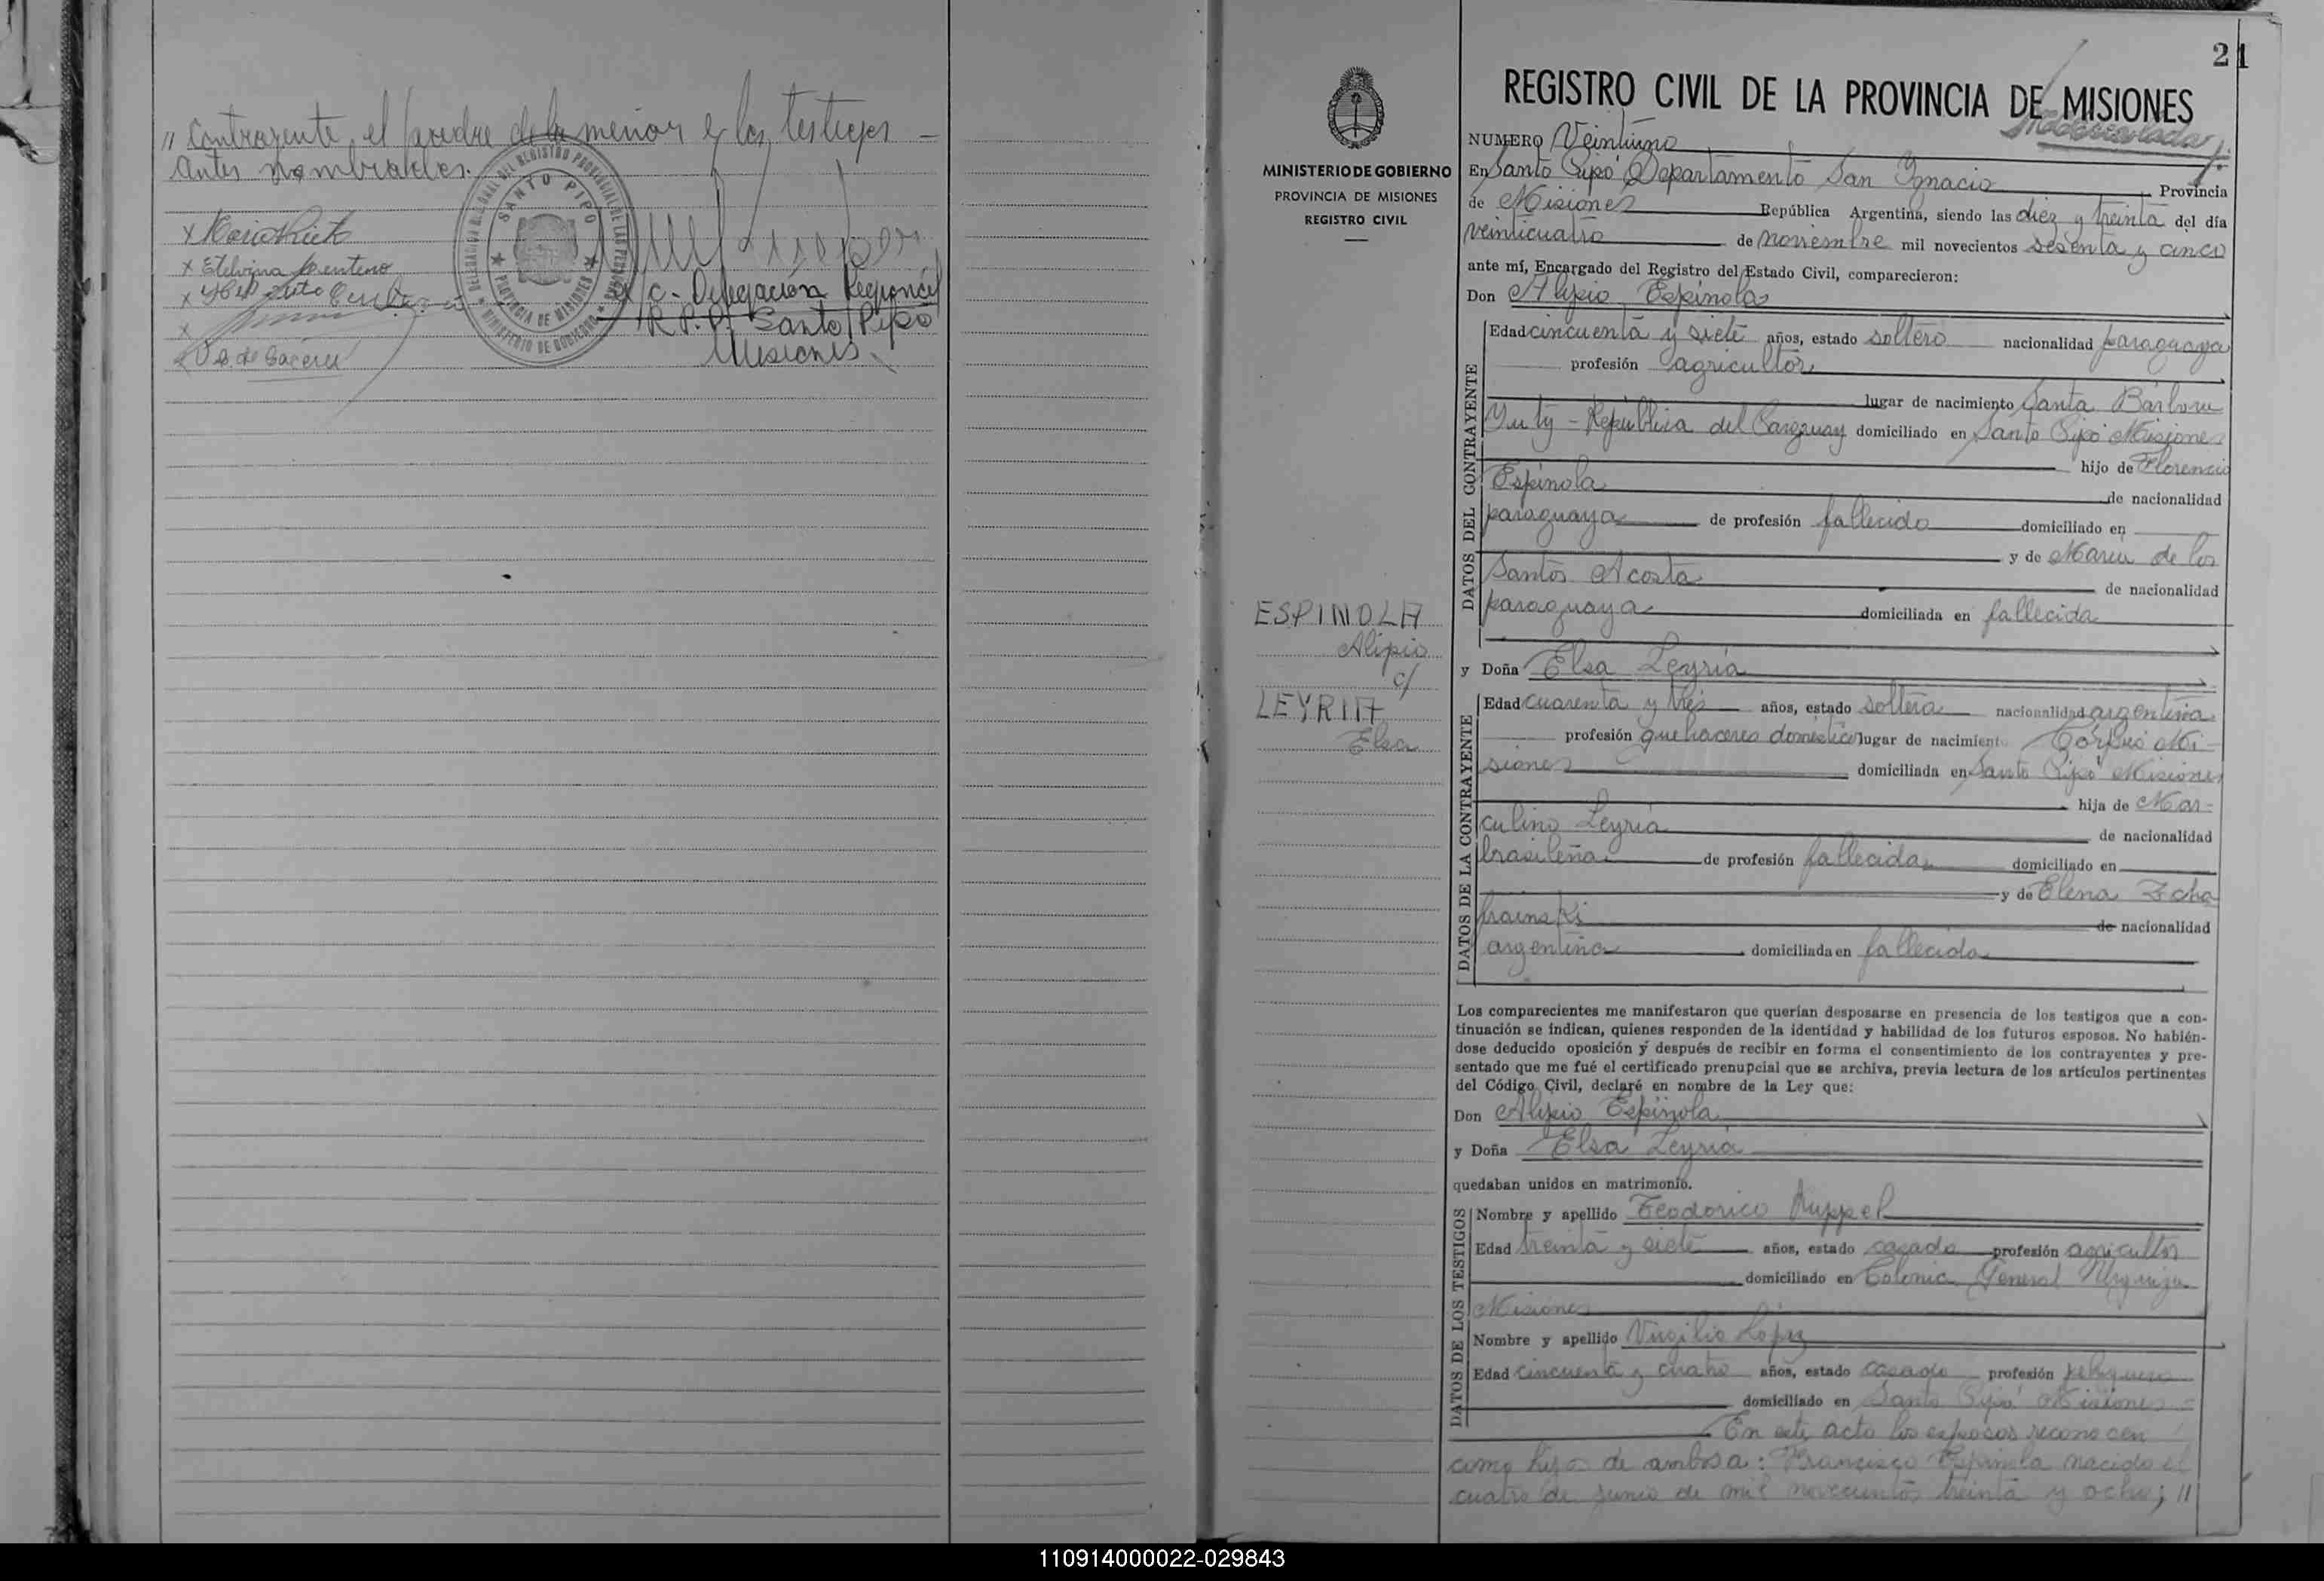 " contrayente, el padre de la menor y los testigos —
antes nombrados.
x Etelvina Centeno
a/c - Delegación Regional
R.P.P. Santo Pipó
Misiones
SANTO PIPO
PROVINCIA DE MISIONES
MINISTERIO DE GOBIERNO
21
REGISTRO CIVIL DE LA PROVINCIA DE MISIONES
MINISTERIO DE GOBIERNO
PROVINCIA DE MISIONES
REGISTRO CIVIL
NUMERO Veintiuno
En Santo Pipó Departamento San Ignacio Provincia
de Misiones República Argentina, siendo las diez y treinta del día
veinticuatro de noviembre mil novecientos sesenta y cinco
ante mí, Encargado del Registro del Estado Civil, comparecieron:
Don Alipio Espinola
DATOS DEL CONTRAYENTE
Edad cincuenta y siete años, estado soltero nacionalidad paraguaya
profesión agricultor
lugar de nacimiento Santa Bárbara
Yuty - República del Paraguay domiciliado en Santo Pipó Misiones
hijo de Florencio
Espinola
de nacionalidad
paraguaya de profesión fallecido domiciliado en
y de María de los
Santos Acosta
de nacionalidad
paraguaya domiciliada en fallecida
ESPINOLA
Alipio
c/
LEYRIA
Elsa
y Doña Elsa Leyria
DATOS DE LA CONTRAYENTE
Edad cuarenta y tres años, estado soltera nacionalidad argentina
profesión quehaceres domésticos lugar de nacimiento Corpus Mi-
siones domiciliada en Santo Pipó Misiones
hija de Mar-
culino Leyria
de nacionalidad
brasileña de profesión fallecida domiciliado en
y de Elena Zcha
prainski
de nacionalidad
argentina domiciliada en fallecida
Los comparecientes me manifestaron que querían desposarse en presencia de los testigos que a con-
tinuación se indican, quienes responden de la identidad y habilidad de los futuros esposos. No habién-
dose deducido oposición y después de recibir en forma el consentimiento de los contrayentes y pre-
sentado que me fué el certificado prenupcial que se archiva, previa lectura de los artículos pertinentes
del Código Civil, declaré en nombre de la Ley que:
Don Alipio Espinola
y Doña Elsa Leyria
quedaban unidos en matrimonio.
DATOS DE LOS TESTIGOS
Nombre y apellido Teodorico Ruppel
Edad treinta y siete años, estado casado profesión agricultor
domiciliado en Colonia General Urquiza
Misiones
Nombre y apellido Virgilio López
Edad cincuenta y cuatro años, estado casado profesión peluquero
domiciliado en Santo Pipó Misiones
En este acto los esposos reconocen
como hijos de ambos a: Francisco Espinola nacido el
cuatro de junio de mil novecientos treinta y ocho; "
110914000022-029843